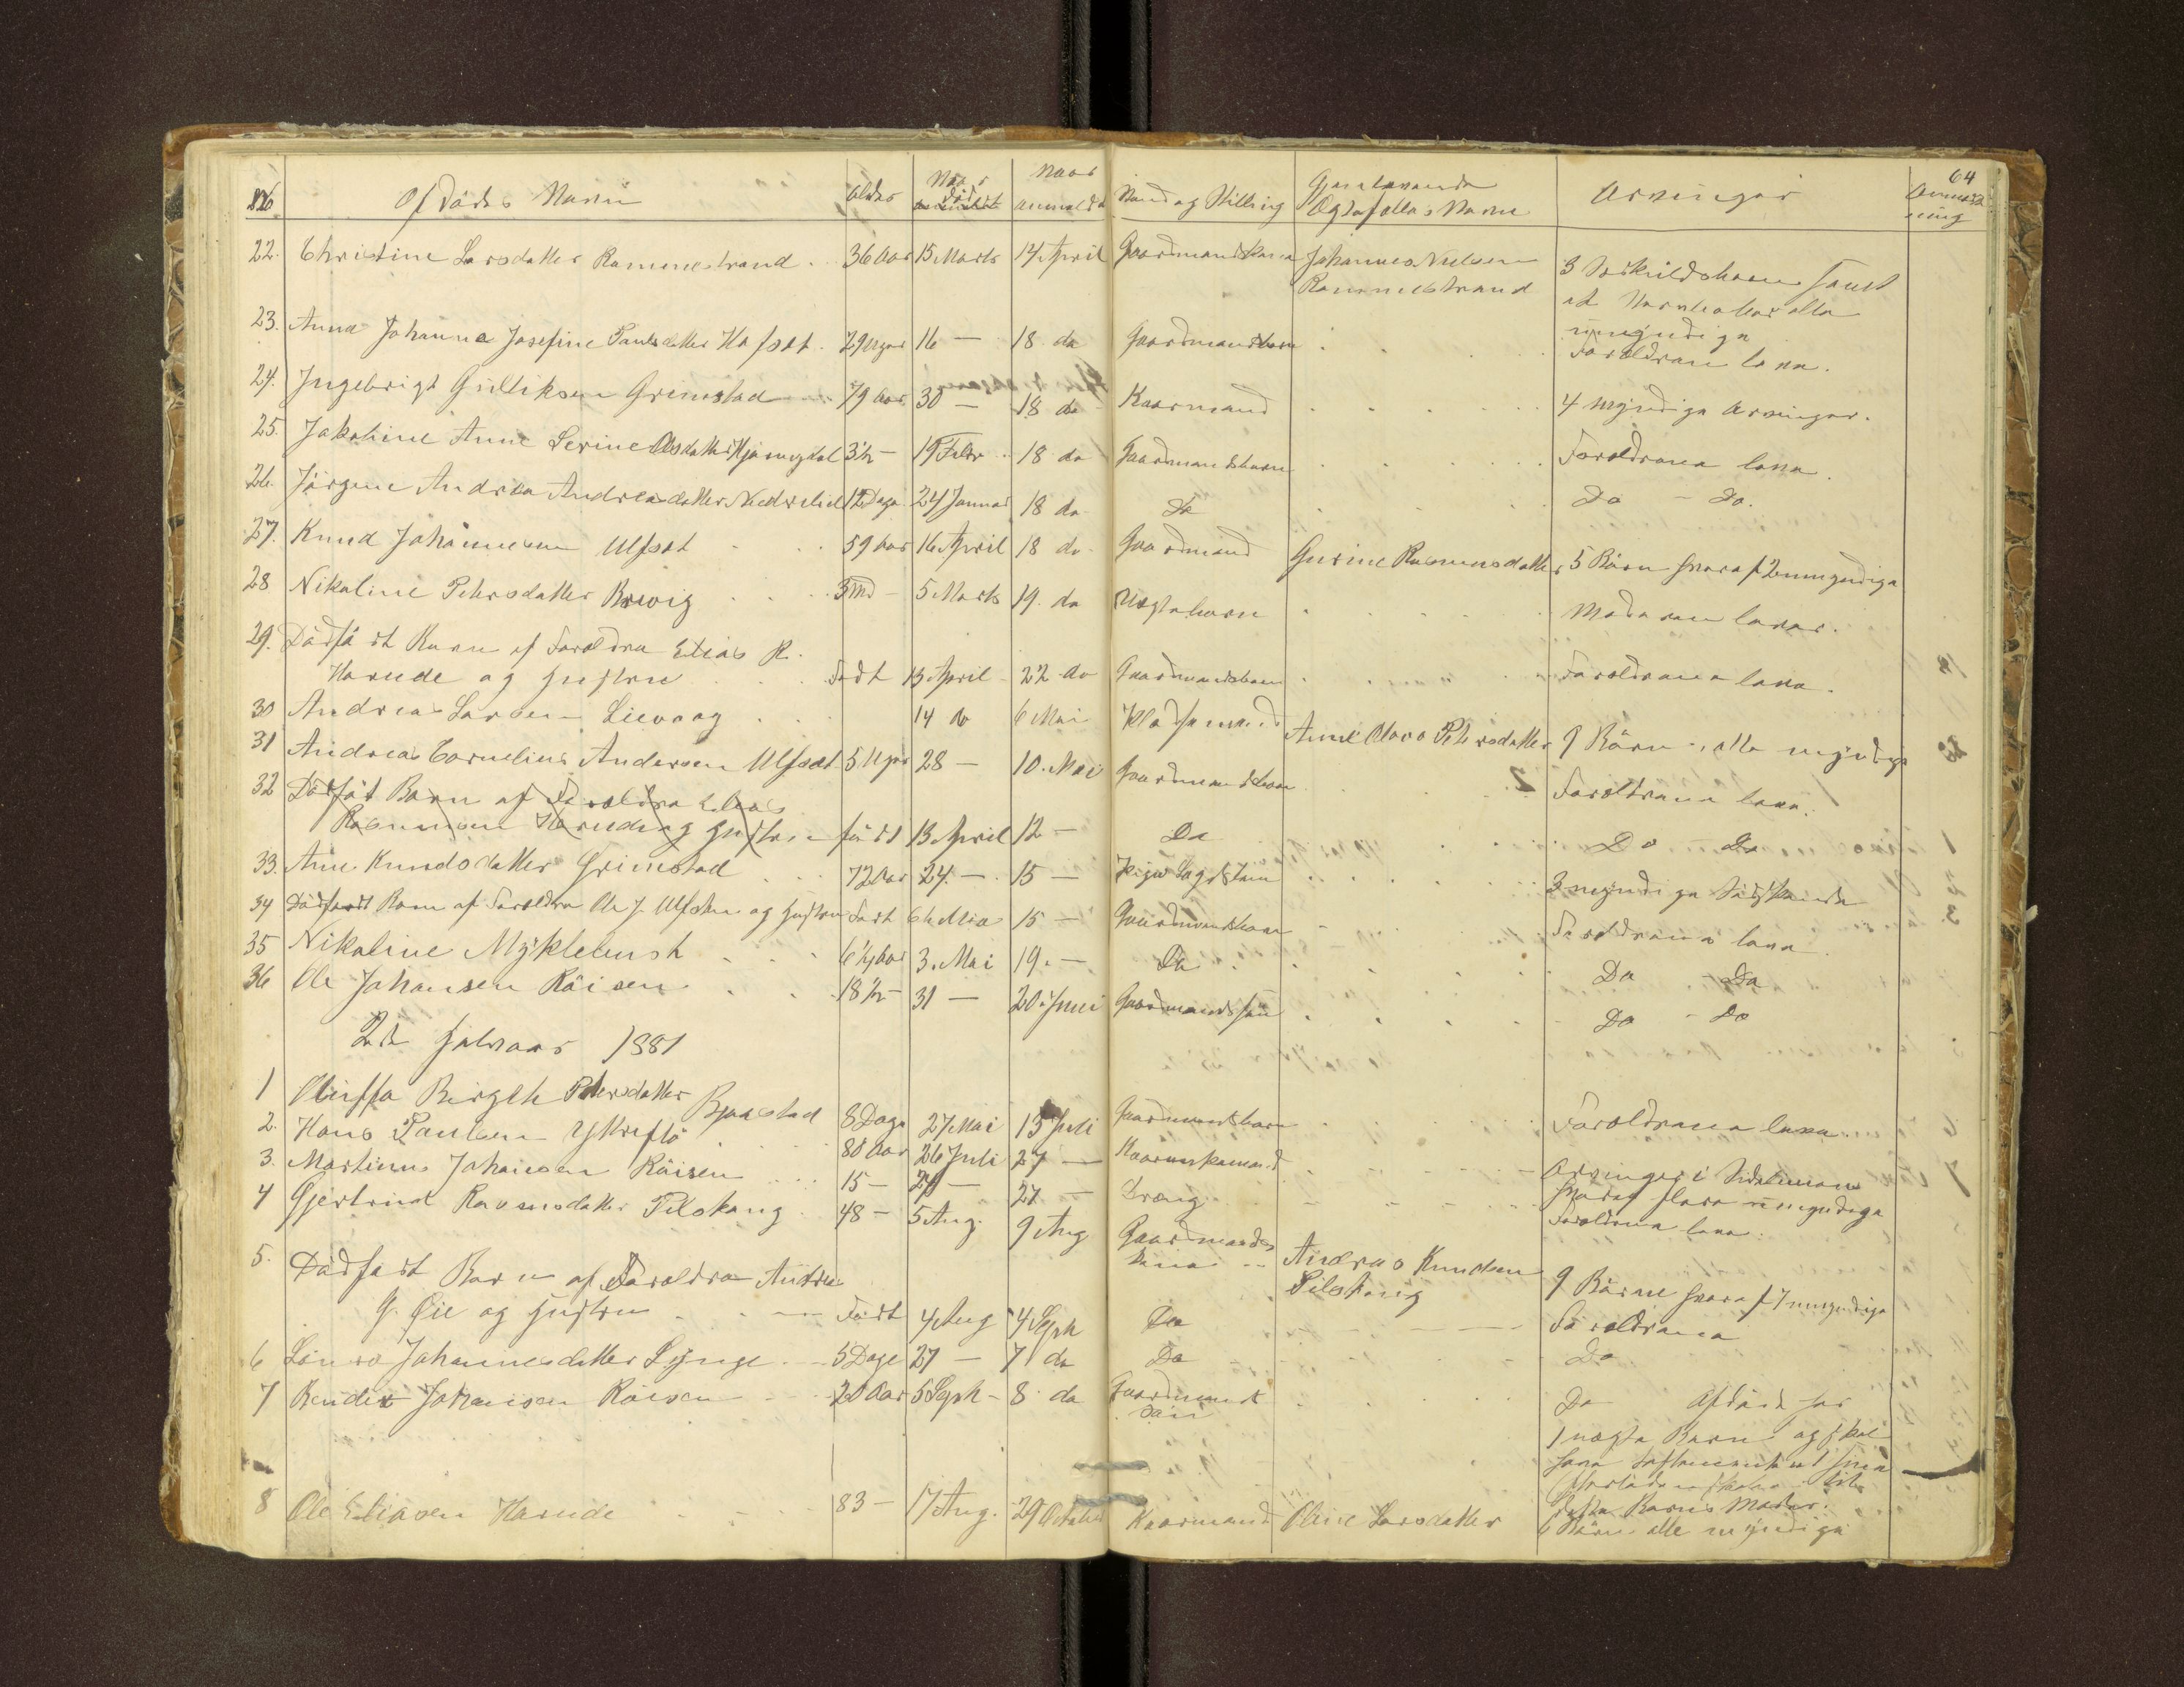 64
No Afdödes Navn Alder Naar död Naar anmeldt Stand og Stilling Gjenlevende Ægtefelles Navn Arvinger Anmærkning
22. Christine Larsdatter Rammestrand 36 Aar 15 Marts 14 April Gaardmandskone Johannes Nielsen
Rammestrand 3
at
umyndige
23. Anna Johanna Josefine Paulsdatter Ulfsæt 29 Uger 16 — 18 do Gaardmandsbarn Foreldrene leve.
24. Ingebrigt Gulliksen Grimstad 79 Aar 30 — 18 do Kaarmand 4 myndige Arvinger.
25. Jakobine Anne Serine Olsdatter 3½ — 19 Febr 18 do Gaardmandsbarn Foreldrene leve.
26. Jörgine Andrea Andreasdatter 12 Dage 24 Januar 18 do Do Do — Do.
27. Knud Johannesen Ulfsæt 59 Aar 16 April 18 do Gaardmand Gurine Rasmusdatter 5 Börn hvoraf 2 umyndige
28 Nikoline Petersdatter Brevig 3 Md — 5 Marts 19. do Uægtebarn Moderen lever.
29. Dödfödt Barn af Foreldre Elias R.
Hareide og Hustru Födt 13 April 22 do Gaardmandsbarn Foreldrene leve.
30 Andreas Larsen Lievaag 14 do 6 Mai Pladsemand Anne Olava Petersdatter 9 Börn alle myndige
31 Andreas Cornelius Andersen Ulfsæt 5 Uger 28 — 10. Mai Gaardmandsbarn Foreldrene leve.
32 Dödfödt Barn af Foreldre Elias
Rasmusen Hareide og Hustru födt 13 April 12 — Do Do — Do
33. Ane Knudsdatter Grimstad 72 Aar 24. — 15 — Pige 3 myndige Södskende
34 Dödfödt Barn af Foreldre Ole J. Ulfsten og Hustru Födt 6te Mai 15 — Gaardmandsbarn Foreldrene leve.
35 Nikoline Myklebust 6½ Aar 3. Mai 19. — Do Do — Do
36 Ole Johansen Röisen 18½ — 31 — 20 Juni Gaardmandssön Do — Do
2det Halvaar 1881
1 Oluffa Birgith Petersdatter Bjaastad 8 Dage 27 Mai 13 Juli Gaardmandsbarn Foreldrene leve.
2. Hans Paulsen Ytreflö 80 Aar 26 Juli 27 — Arvinger i Sidelinien
hvoraf flere umyndige
3. Martinus Johansen Röisen 15 — 27 — 27 — Dreng Foreldrene leve.
4 Gjertrud Rasmusdatter Pilskoug 48 — 5 Aug. 9 Aug Gaardmands
kone Andreas Knudsen
Pilskoug 9 Börn hvoraf 7 umyndige
5. Dödfödt Barn af Foreldre Andreas
G. Öie og Hustru Födt 4 Aug 4 Septr Do Foreldrene
6 Johannesdatter Lynge 5 Dage 27 — 7 do Do Do
7 Bendix Johansen Röisen 20 Aar 5 Septr — 8. do Gaardmands
Sön Do Afdöde har
1 uægte Barn og skal
have
dette Barns Moder.
8 Ole Eliasen Hareide 83 — 17 Aug. 29 October Kaarmand Oline Larsdatter 6 Börn alle myndige